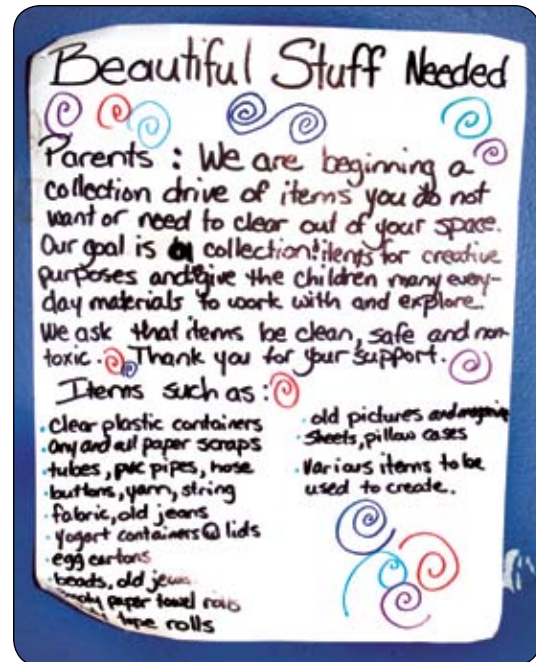 Beautiful Stuff Needed
Parents : We are beginning a
collection drive of items you do not
want or need to clear out of your space.
Our goal is a collection items for creative
purposes and give the children many every-
day materials to work with and explore.
We ask that items be clean, safe and non-
toxic. Thank you for your support.
Items such as :
• clear plastic containers
• any and all paper scraps
• tubes, pvc pipes, hose
• buttons, yarn, string
• fabric, old jeans
• yogart containers @ lids
• egg cartons
• beads, old
paper towel rolls
tape rolls
• old pictures and
• sheets, pillow cases
• various items to be
used to create.